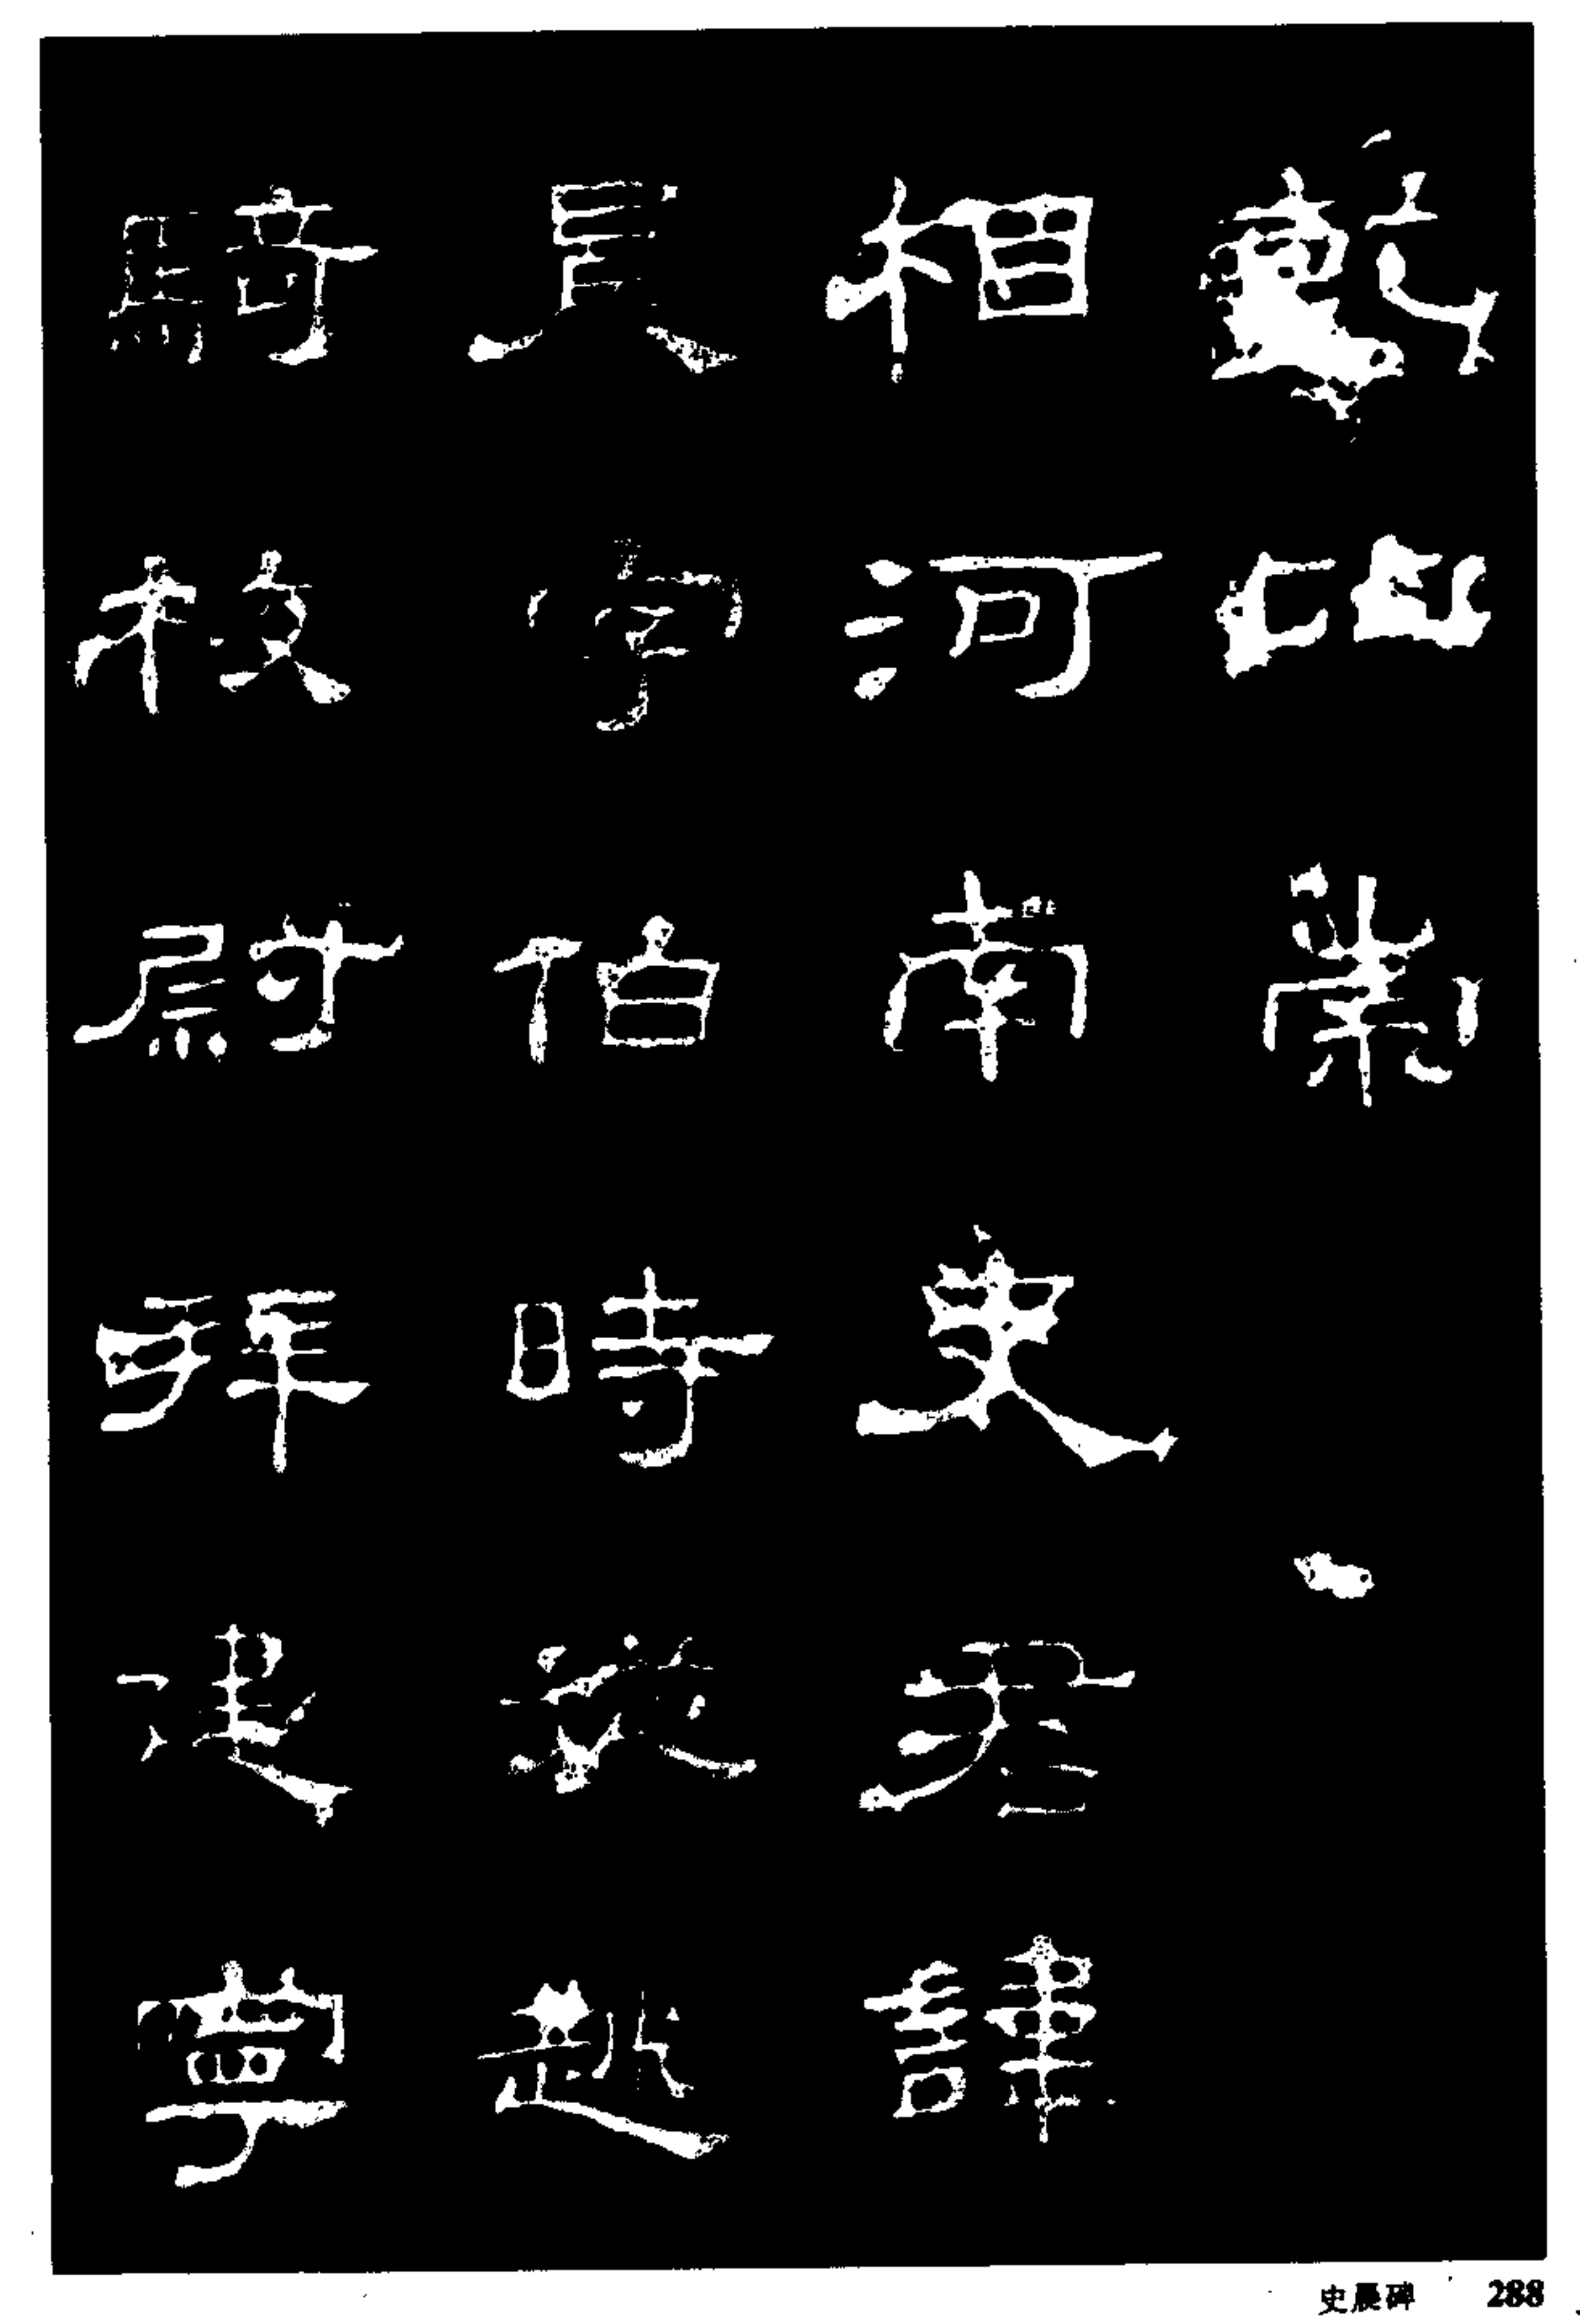 乾㘴㡀
相河南史君諱
晨字伯時從越
騎校尉拜建寧
史晨碑 288